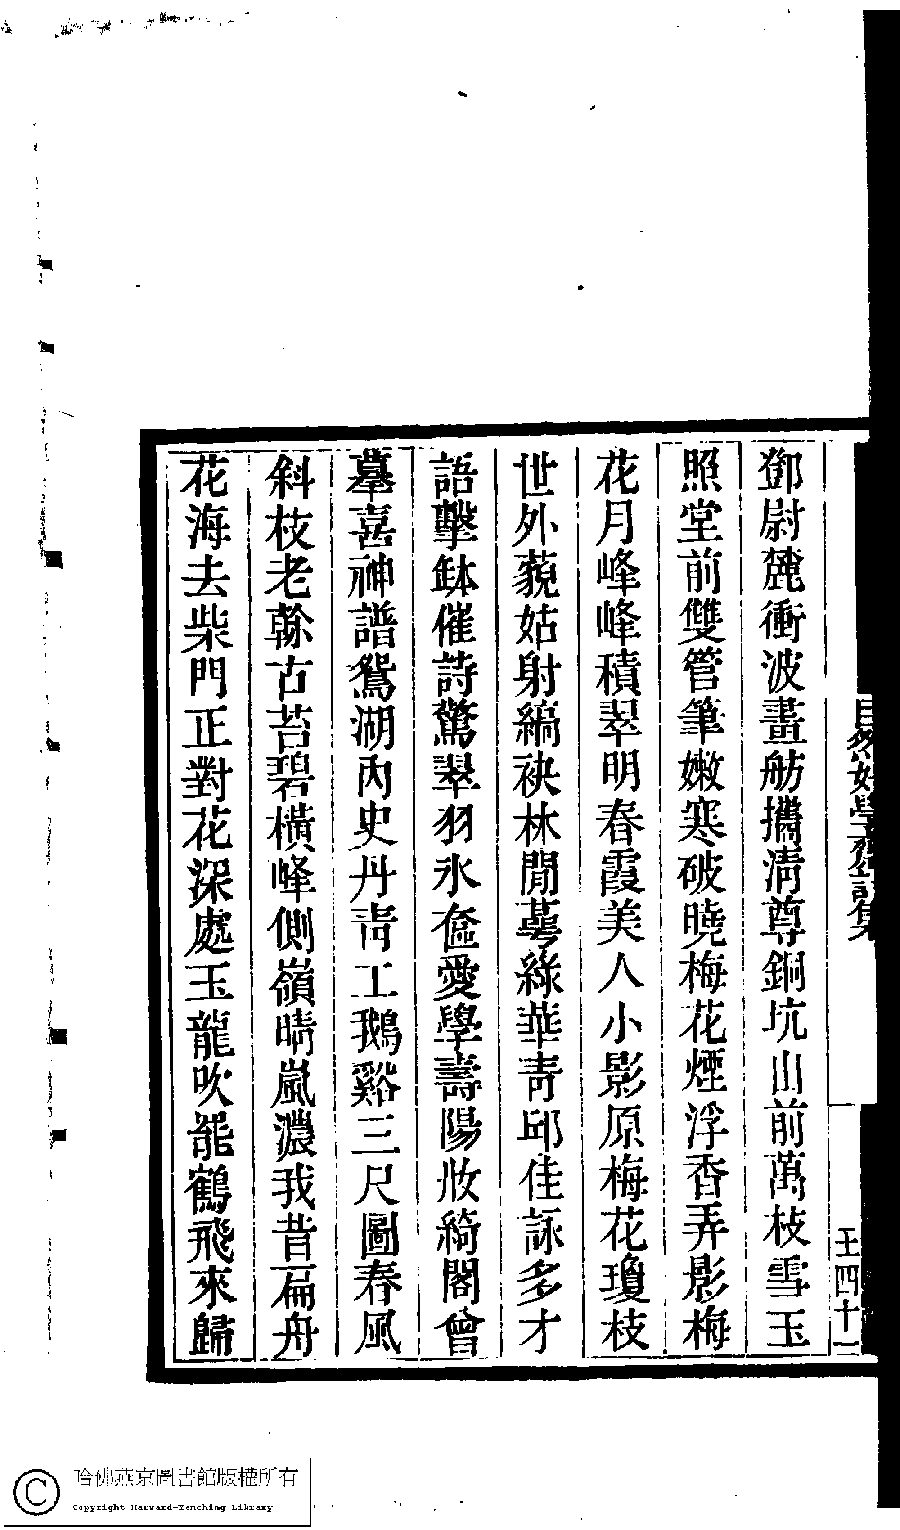 鄧尉麓衝波畫舫攜清尊銅坑山前萬枝雪玉
照堂前雙管筆嫩寒破曉梅花煙浮香弄影梅
花月峰峰積翠明春霞美人小影原梅花瓊枝
世外藐姑射縞袂林閒萼綠華青邱佳詠多才
語擊缽催詩驚翠羽氷奩愛學壽陽妝綺閣曾
摹喜神譜鴛湖內史丹青工鵝谿三尺圖春風
斜枝老榦古苔碧橫峰側嶺晴嵐濃我昔扁舟
花海去柴門正對花深處玉龍吹罷鶴飛來歸
自然好學齋詩集
王四十一
哈佛燕京圖書館版權所有
Copyright Harvard-Yenching Library